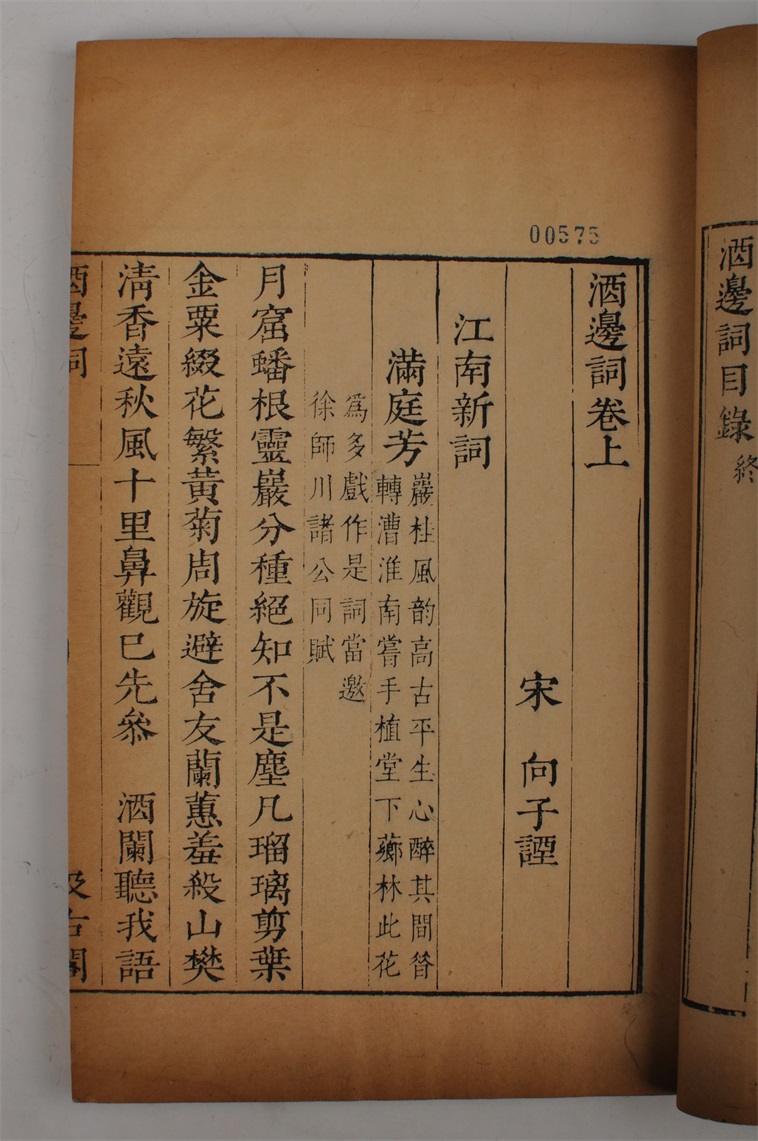 酒邊詞目錄終
00575
酒邊詞卷上
宋　向子諲
江南新詞
滿庭芳
巖桂風韵高古平生心醉其間昝
轉漕淮南嘗手植堂下薌林此花
爲多戲作是詞當邀
徐師川諸公同賦
月窟蟠根靈巖分種絕知不是塵凡瑠璃剪葉
金粟綴花繁黃菊周旋避舍友蘭蕙羞殺山樊
清香遠秋風十里鼻觀已先叅　酒闌聽我語
酒邊詞
汲古閣